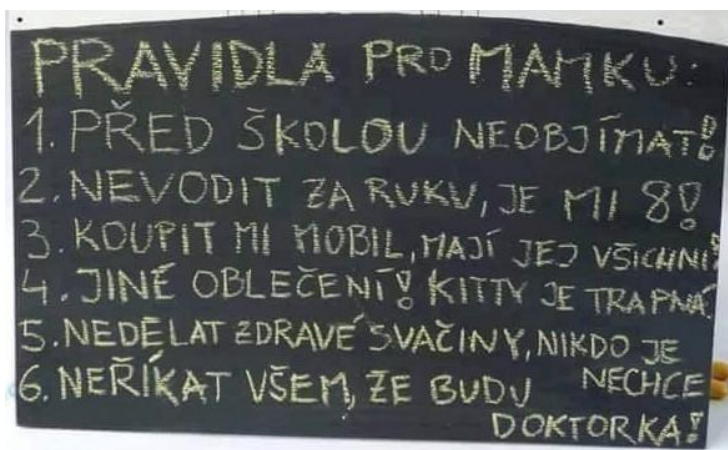 PRAVIDLA PRO MAMKU:
1. PŘED ŠKOLOU NEOBJÍMAT!
2. NEVODIT ZA RUKU, JE MI 8!
3. KOUPIT MI MOBIL, MAJÍ JEJ VŠICHNI!
4. JINÉ OBLEČENÍ! KITTY JE TRAPNÁ!
5. NEDĚLAT ZDRAVÉ SVAČINY, NIKDO JE
NECHCE
6. NEŘÍKAT VŠEM, ŽE BUDU
DOKTORKA!